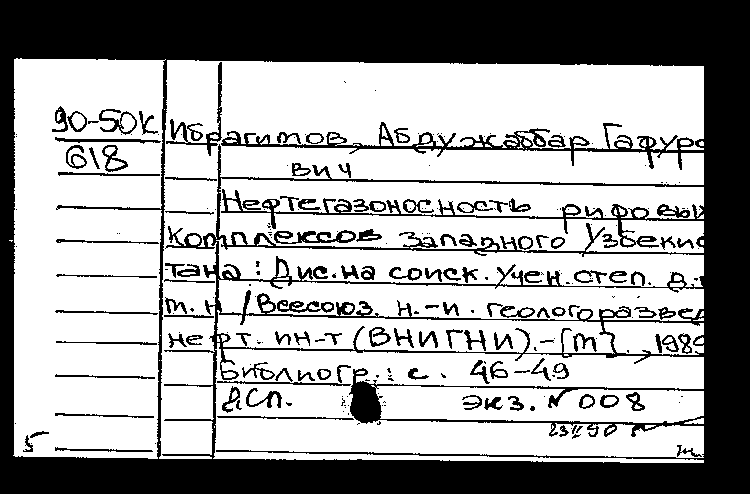 90-50К Ибрагимов, Абдужаббар Гафуро
618
вич
Нефтегазоносность рифовых
комплексов Западного Узбекис
тана: Дис. на соиск. учен. степ. д.г
м.н / Всесоюз. н.-и. геологоразвед
нефт. ин-т (ВНИГНИ). -[М]., 1989
Библиогр.: с. 46-49
ДСП. экз. №008
5